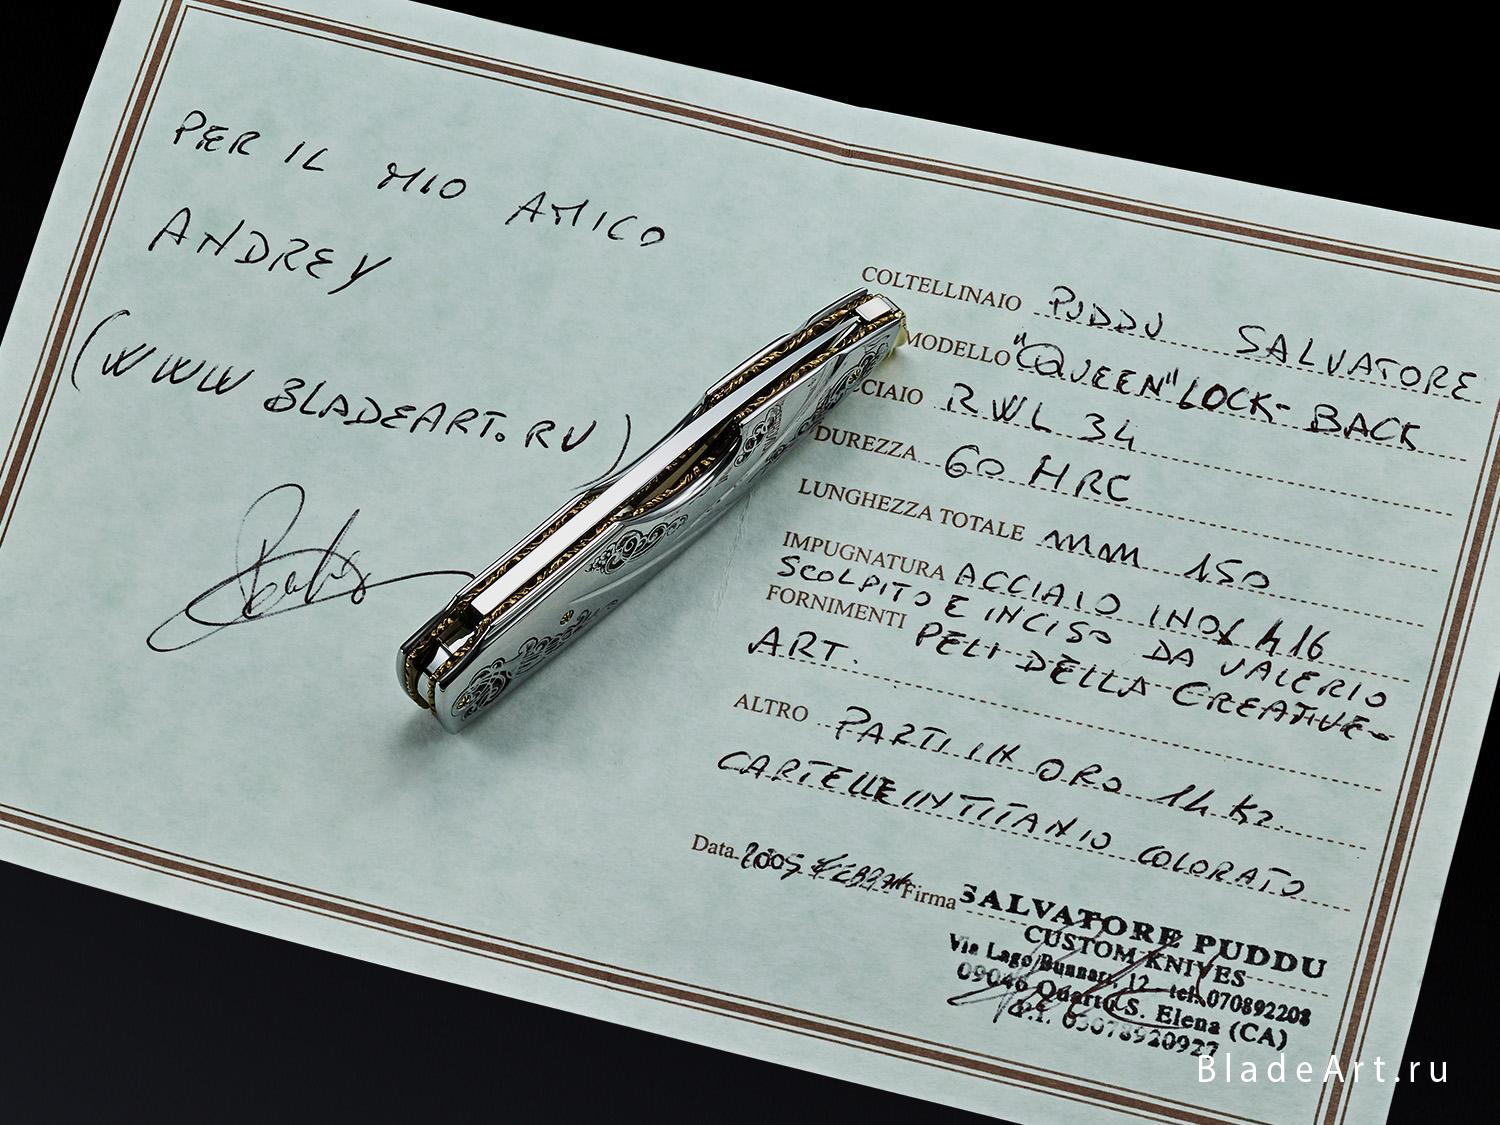 PER IL MIO AMICO
ANDREY
(WWW BLADEART.RU)
COLTELLINAIO PUDDU SALVATORE
MODELLO "QUEEN" LOCK-BACK
CIAIO RWL 34
DUREZZA 60 HRC
LUNGHEZZA TOTALE mm 150
IMPUGNATURA ACCIAIO INOX 416
SCOLPITO E INCISO DA VALERIO
FORNIMENTI PELI DELLA CREATIVE-
ART.
ALTRO PARTI IN ORO 14 Kt.
CARTELLE IN TITANIO COLORATO
Data 2005 Firma
SALVATORE PUDDU
CUSTOM KNIVES
Via Lago Bunnari, 12 tel. 070892208
09046 Quartu S. Elena (CA)
P.I. 03078920927
BladeArt.ru